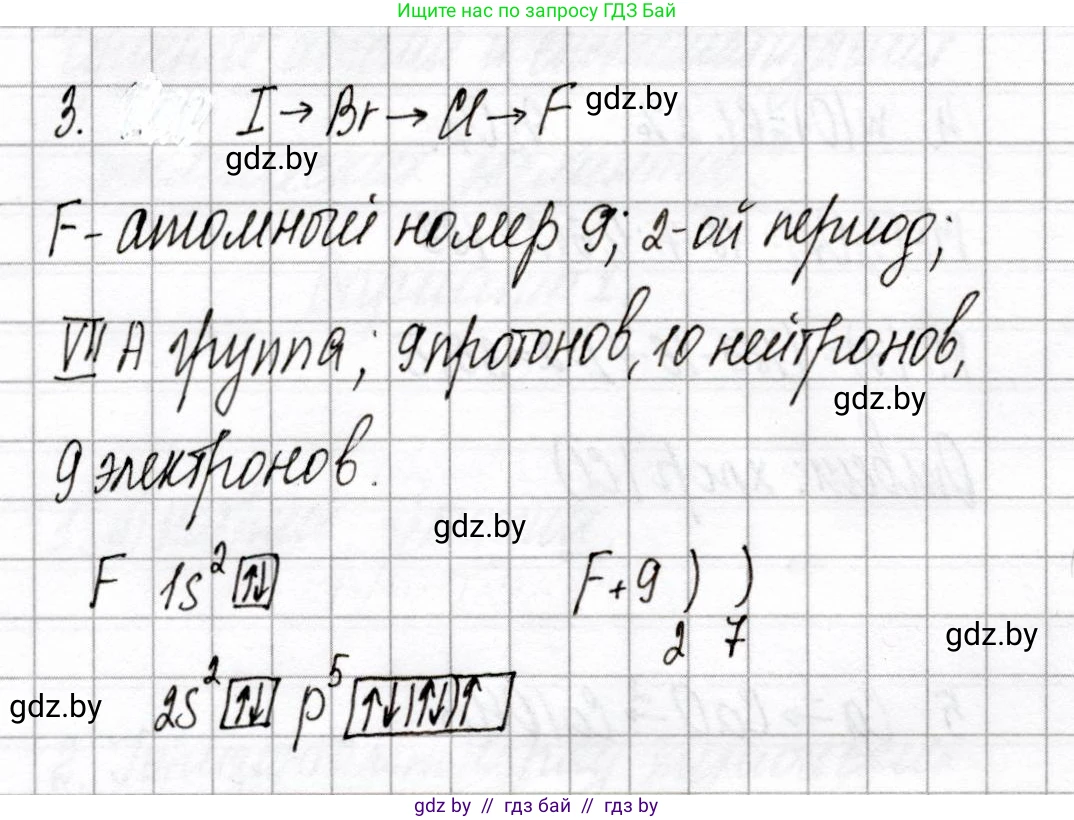 Ищите нас по запросу ГДЗ Бай
3. I → Br → Cl → F gdz.by
gdz.by
F - атомный номер 9; 2-ой период;
VII A группа; 9 протонов, 10 нейтронов,
gdz.by
9 электронов.
gdz.by
F 1s² ↑↓ F +9 ) )
2 7
gdz.by
gdz.by 2s² ↑↓ p⁵ ↑↓ ↑↓ ↑
gdz by // гдз бай // гдз by